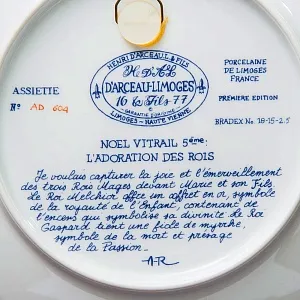 HENRI D'ARCEAU & FILS
H. D'A. & L.
D'ARCEAU-LIMOGES
16 & Fils 77
GARANTIE D'ORIGINE
LIMOGES - HAUTE VIENNE
ASSIETTE
No AD 604
PORCELAINE
DE LIMOGES
FRANCE
PREMIÈRE EDITION
BRADEX No 18-15-2.5
NOEL VITRAIL 5ème:
L'ADORATION DES ROIS
Je voulais capturer la joie et l'émerveillement
des trois Rois Mages devant Marie et son Fils.
Le Roi Melchior offre un coffret en or, symbole
de la royauté de l'Enfant, contenant de
l'encens qui symbolise sa divinité. Le Roi
Gaspard tient une fiole de myrrhe,
symbole de la mort et présage
de la Passion.
A-R